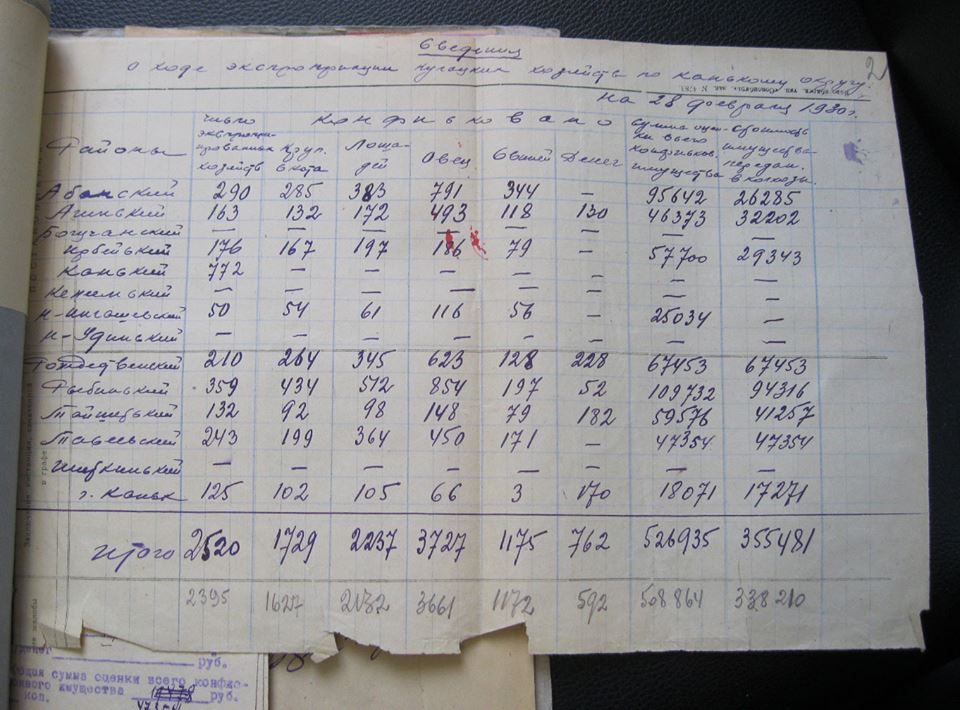 Сведения
о ходе экспроприации кулацких хозяйств по Канскому округу 2
на 28 февраля 1930 г.
Районы число экспроприированных хозяйств Конфисковано Круп. скота Лошадей Овец Свиней Денег Сумма оценки всего конфисков. имущества Стоимость имущества передан. в колхозы
Абанский 290 285 383 791 344 — 95642 26285
Агинский 163 132 172 493 118 130 46373 32202
Богучанский — — — — — — —
Ирбейский 176 167 197 186 79 — 57700 29343
Канский 772 — — — — — — —
Кежемский — — — — — — — —
Н-Ингашевский 50 54 61 116 56 — 25034 —
Н-Удинский — — — — — — — —
Рождественский 210 264 345 623 128 228 67453 67453
Рыбинский 359 434 512 854 197 52 109732 94316
Тайшетский 132 92 98 148 79 182 59576 41257
Тасеевский 243 199 364 450 171 — 47354 47354
Шиткинский — — — — — — — —
г. Канск 125 102 105 66 3 170 18071 17271
Итого 2520 1729 2237 3727 1175 762 526935 355481
2395 1627 2132 3661 1172 592 508864 338210
руб.
сумма оценки всего конфис-
имущества руб.